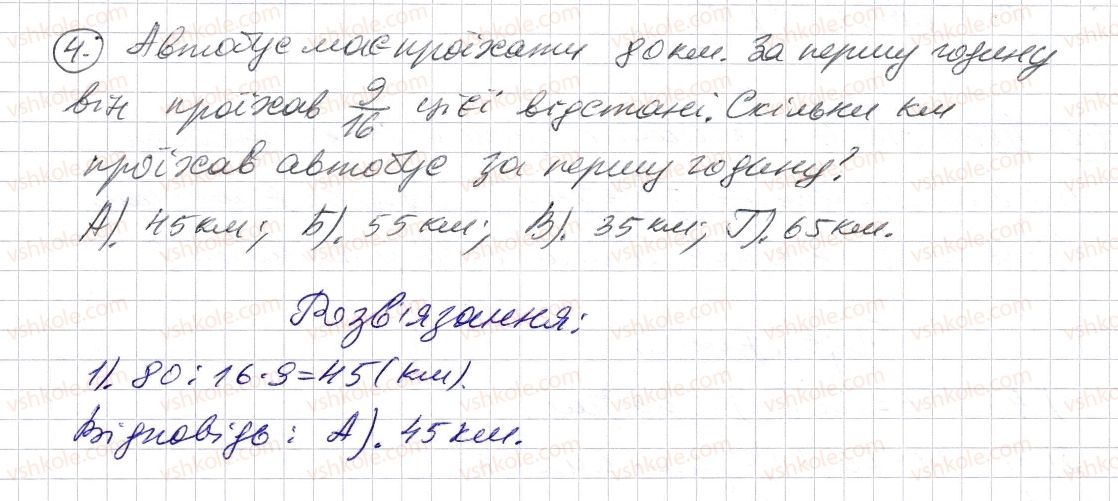 4. Автобус має проїхати 80 км. За першу годину
він проїхав 9/16 цієї відстані. Скільки км
проїхав автобус за першу годину?
А). 45 км; Б). 55 км; В). 35 км; Г). 65 км.
Розв'язання:
1). 80 : 16 · 9 = 45 (км).
Відповідь : А). 45 км.